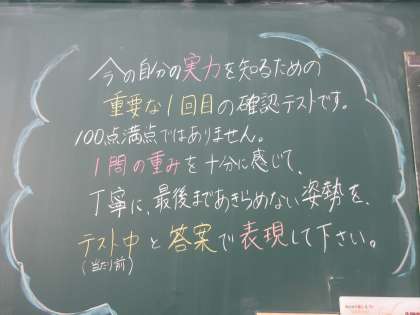 今の自分の実力を知るための
重要な1回目の確認テストです。
100点満点ではありません。
1問の重みを十分に感じて、
丁寧に、最後まであきらめない姿勢を、
テスト中と答案で表現して下さい。
(当たり前)